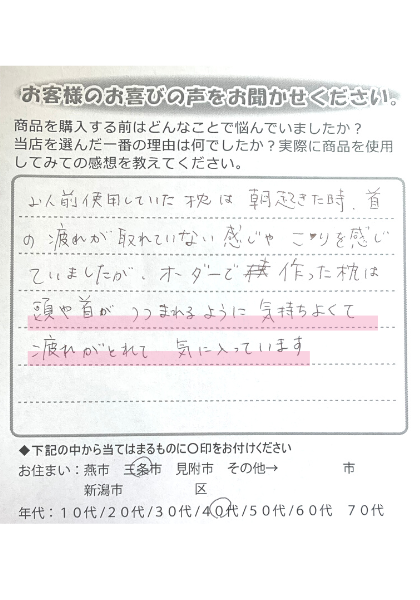 お客様のお喜びの声をお聞かせください。
商品を購入する前はどんなことで悩んでいましたか？
当店を選んだ一番の理由は何でしたか？実際に商品を使用
してみての感想を教えてください。
以前使用していた枕は朝起きた時、首
の疲れが取れていない感じやこりを感じ
ていましたが、オーダーで作った枕は
頭や首がつつまれるように気持ちよくて
疲れがとれて気に入っています
◆下記の中から当てはまるものに〇印をお付けください
お住まい：燕市 三条市 見附市 その他→ 市
新潟市 区
年代：１０代/２０代/３０代/４０代/５０代/６０代 ７０代